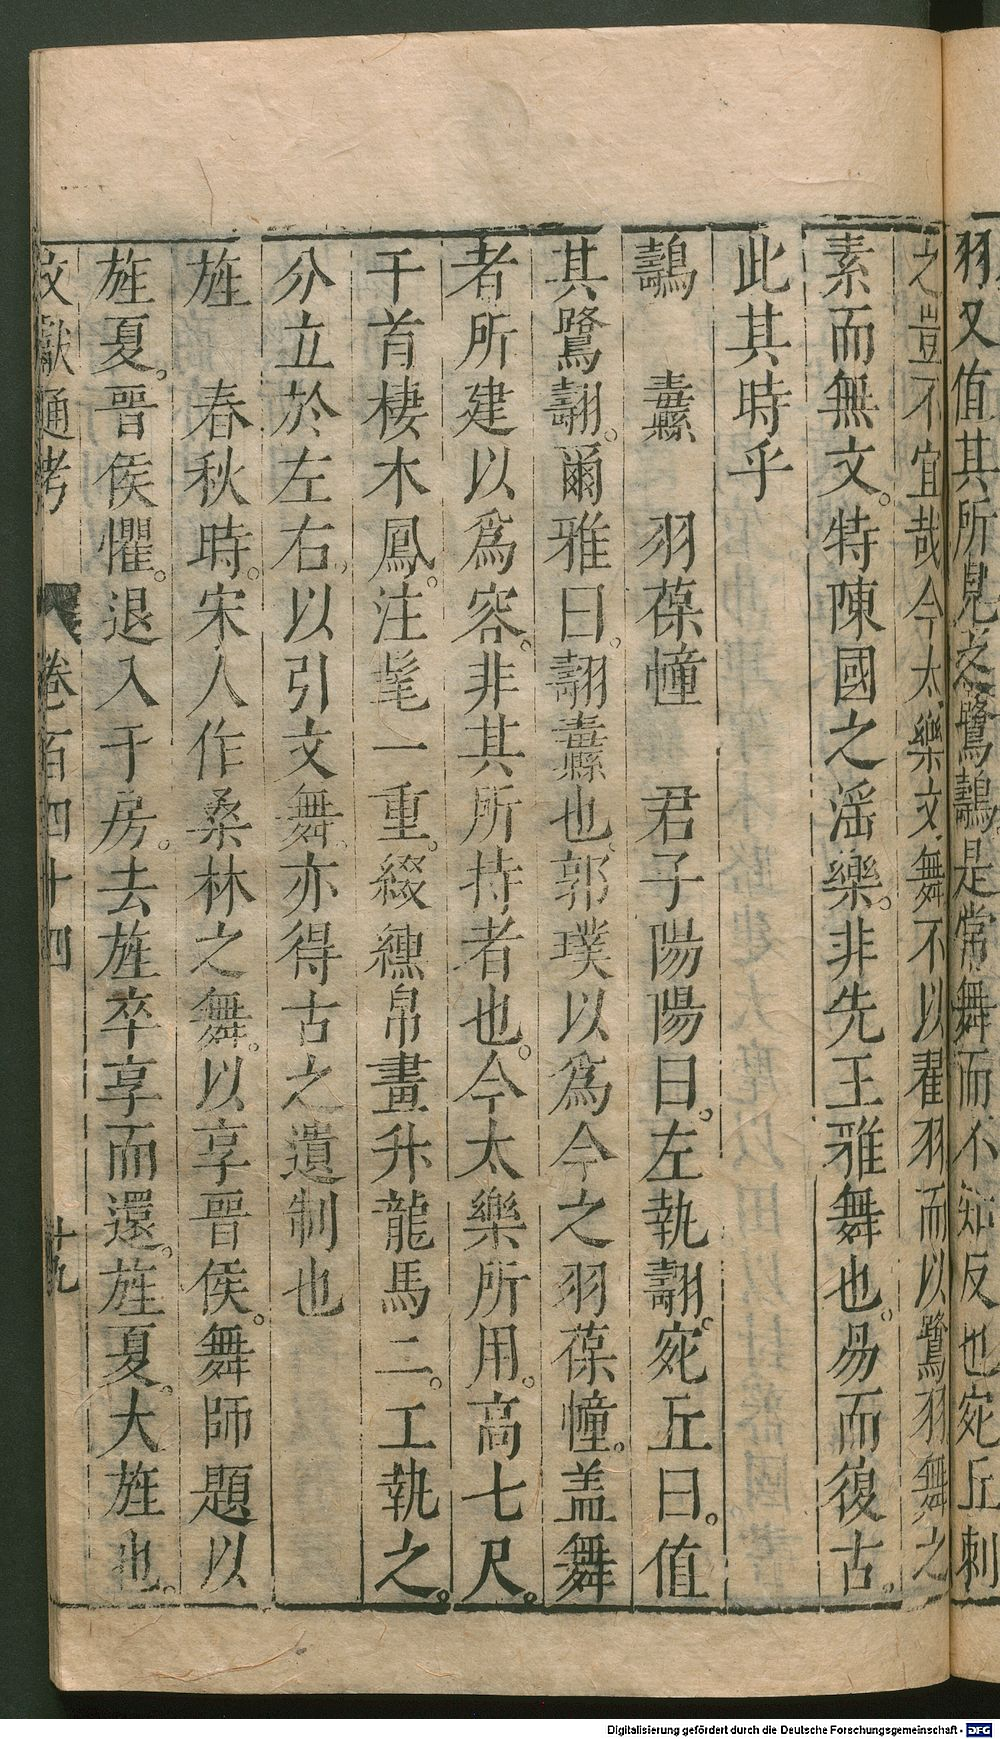 羽又值其所見之鷺鷊是常舞而不知反也宛丘刺
之豈不宜哉今太樂文舞不以翟羽而以鷺羽舞之
素而無文。特陳國之淫樂。非先王雅舞也。易而復古。
此其時乎
鷊　纛　羽葆幢　君子陽陽曰。左執翿。宛丘曰。值
其鷺翿。爾雅曰。翿纛也。郭璞以為今之羽葆幢。盖舞
者所建以為容。非其所持者也。今太樂所用。高七尺。
干首棲木鳳。注髦一重。綴纁帛畫升龍馬二。工執之。
分立於左右。以引文舞。亦得古之遺制也
旌　春秋時。宋人作桑林之舞。以享晉侯。舞師題以
旌夏。晉侯懼。退入于房。去旌卒享而還。旌夏。大旌也。
文獻通考　卷百四十四　十九
Digitalisierung gefördert durch die Deutsche Forschungsgemeinschaft - DFG